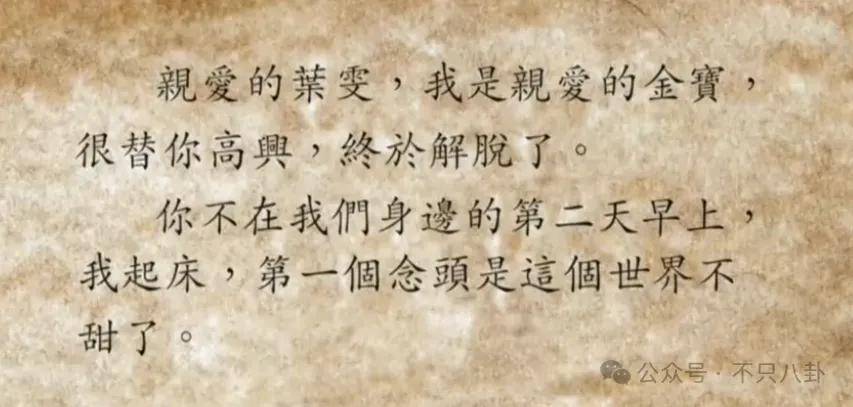 親愛的葉雯，我是親愛的金寶，
很替你高興，終於解脫了。
你不在我們身邊的第二天早上，
我起床，第一個念頭是這個世界不
甜了。
公众号·不只八卦